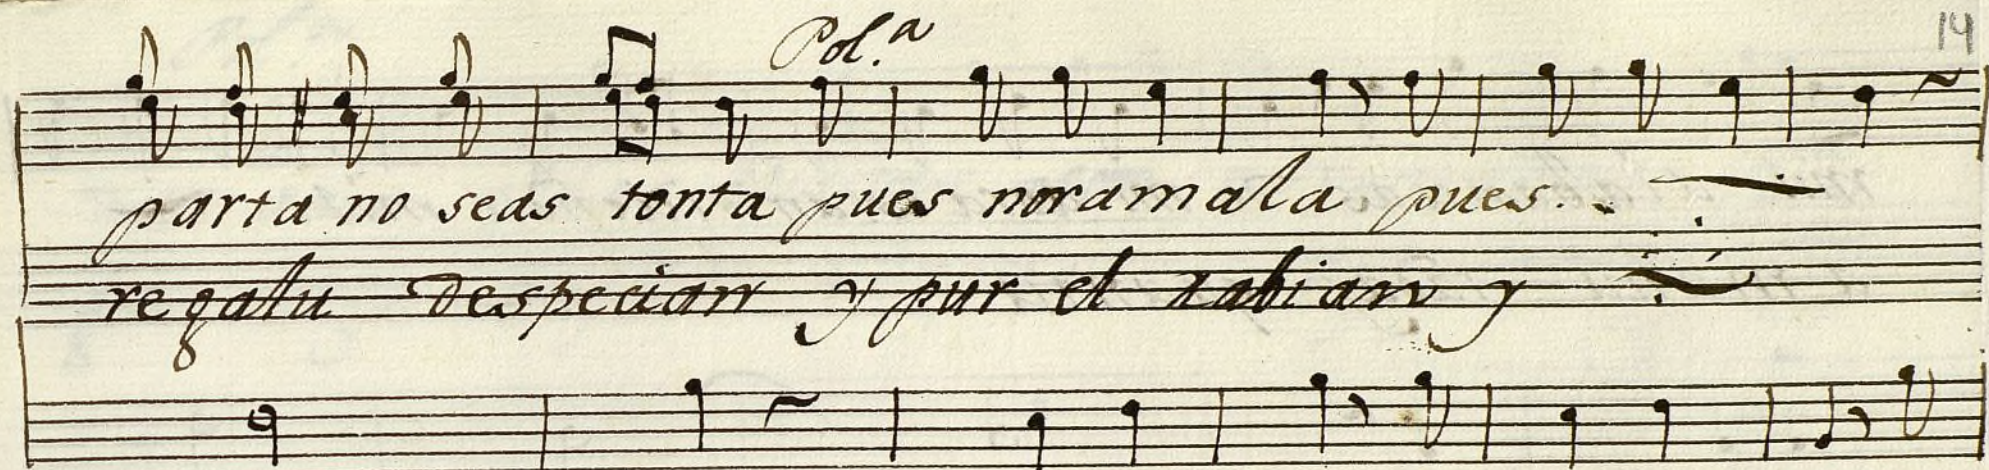 14
Pol.ª
parta no seas tonta pues noramala pues..
regalu despecian y pur el rabian y